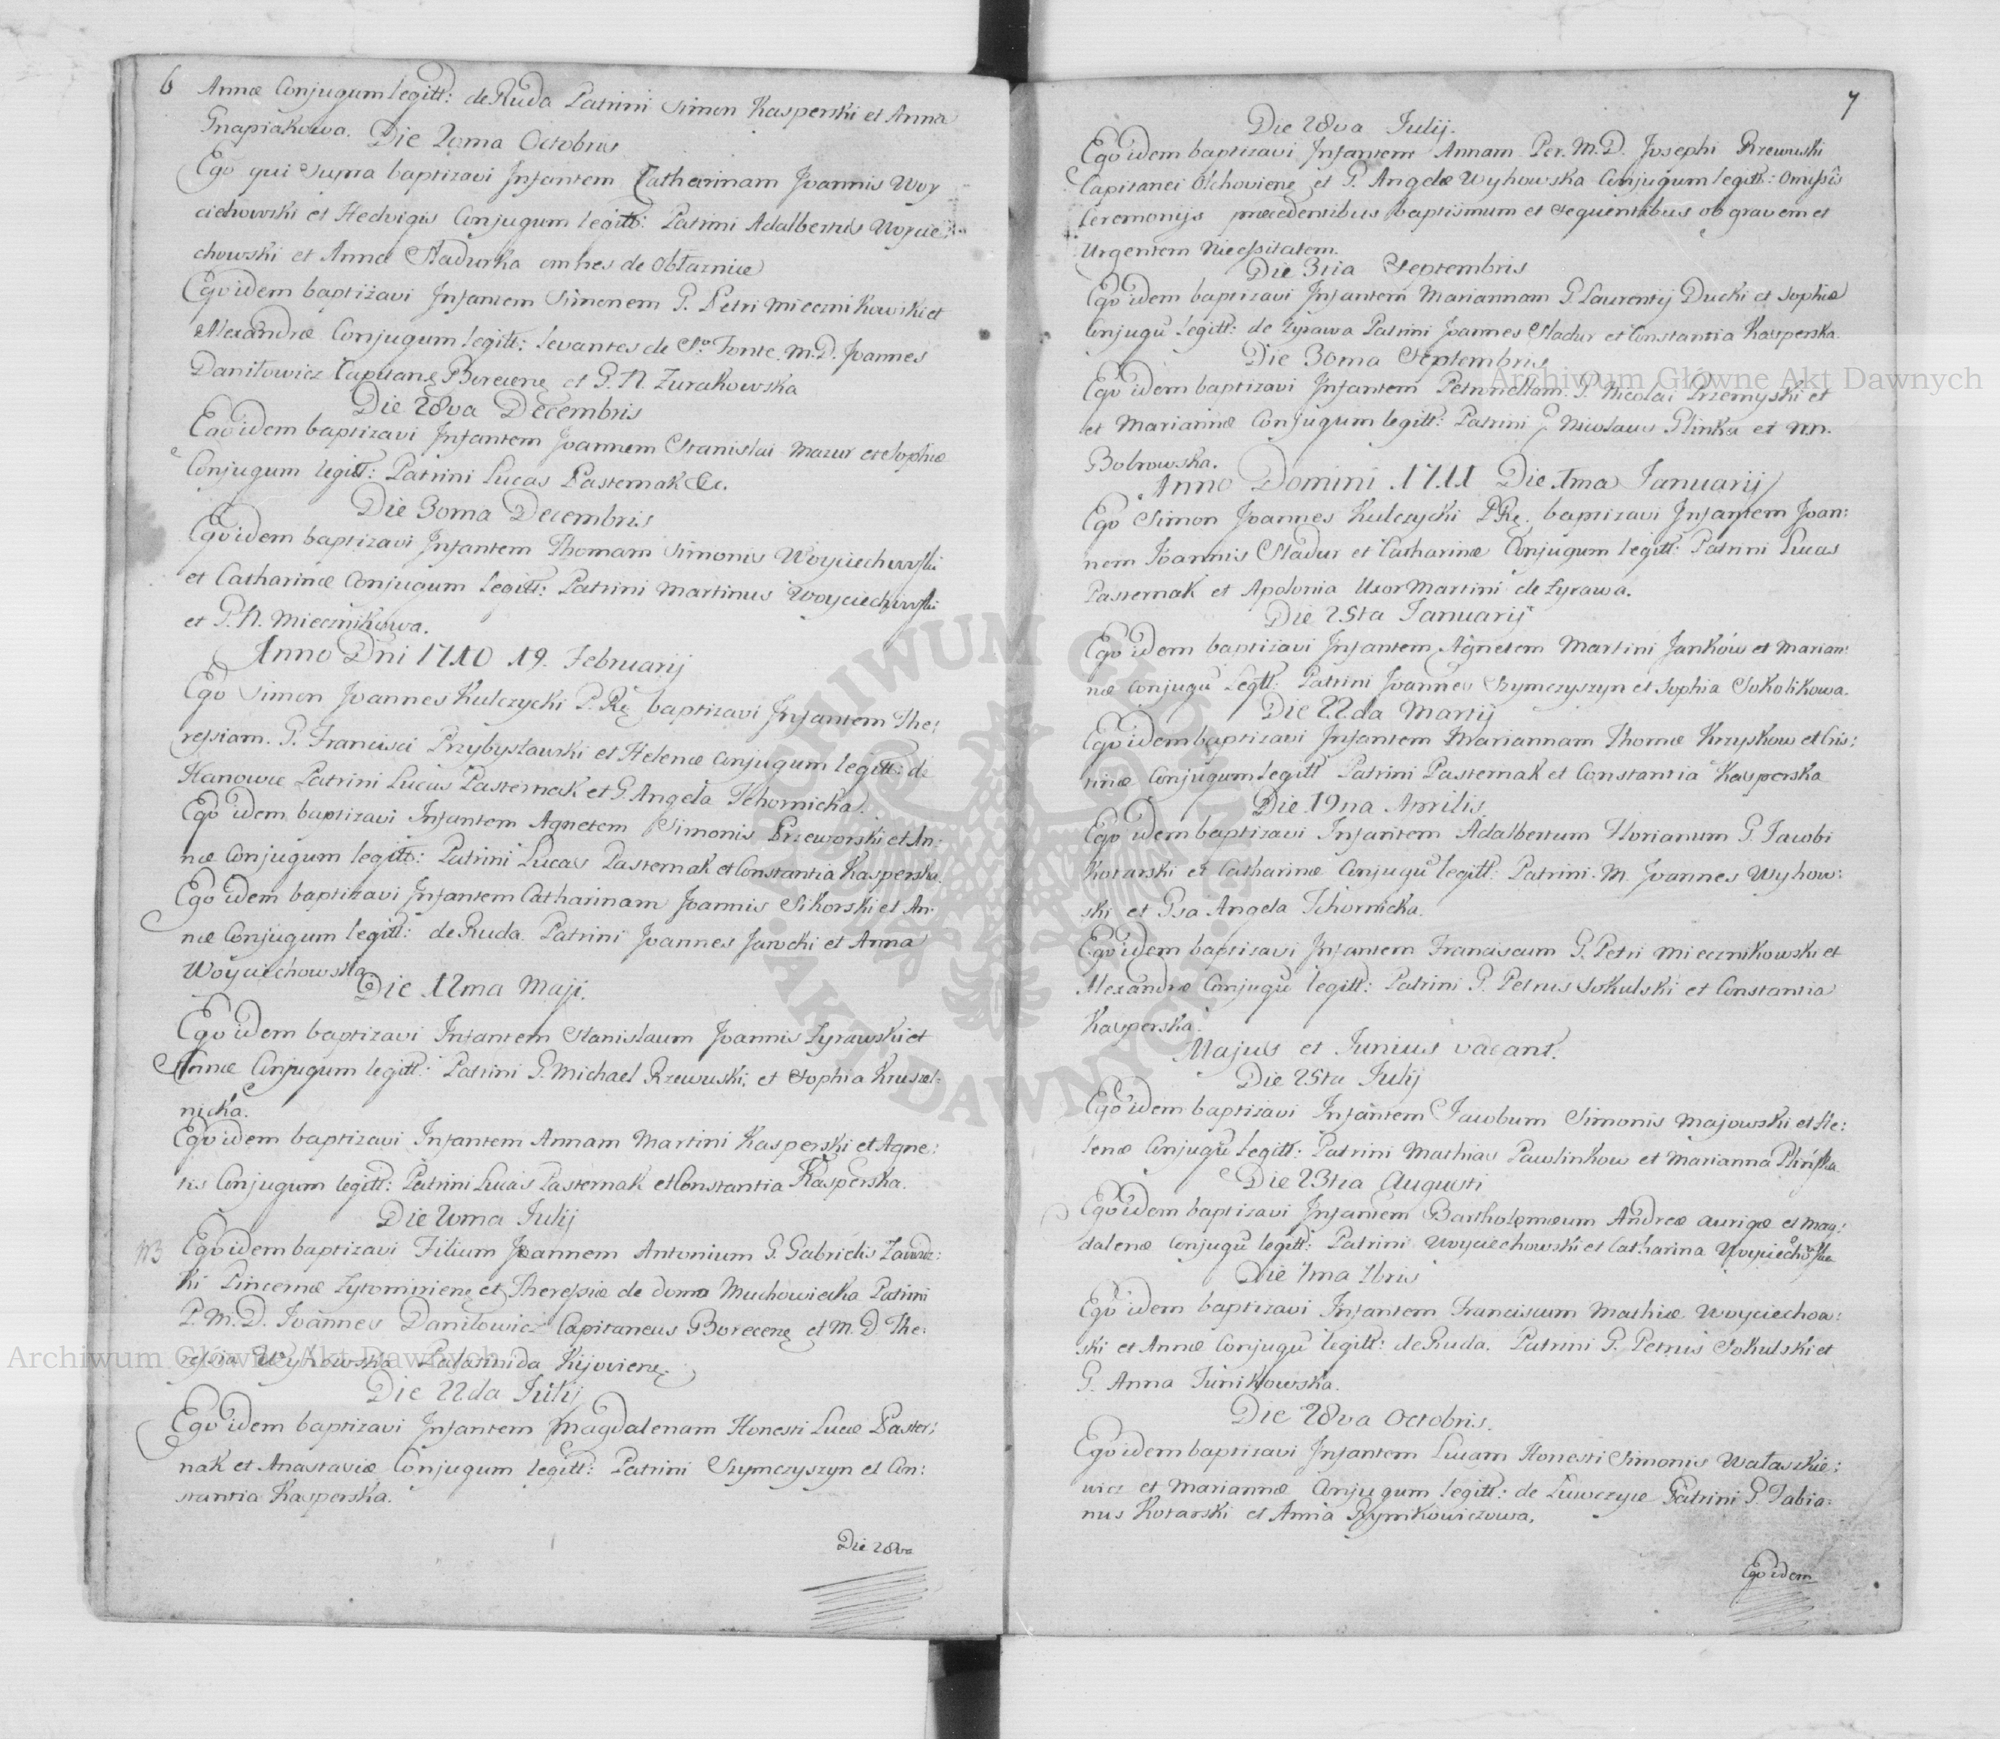 6
Annæ Conjugum legitt: de Ruda Patrini Simon Kasperski et Anna
Gnapiakowa.
Die 20ma Octobris
Ego qui supra baptizavi Infantem Catharinam Joannis Woy
ciechowski et Hedvigis Conjugum legitt: Patrini Adalbertus Woycie:
chowski et Anna Stadurka omnes de Obłaznica
Ego idem baptizavi Infantem Simonem G. Petri Miecznikowski et
Alexandræ Conjugum legitt: Levantes de So. Fonte. M.D. Joannes
Daniłowicz Capitanę Borecenę et G. N. Zurakowska
Die 28va Decembris
Ego idem baptizavi Infantem Joannem Stanislai Mazur et Sophiæ
Conjugum legitt: Patrini Lucas Pasternak &c.
Die 30ma Decembris
Ego idem baptizavi Infantem Thomam Simonis Woyciechowski
et Catharinæ Conjugum legitt: Patrini Martinus Woyciechowski
et G. N. Miecznikowa.
Anno Dni 1710 19. Februarij
Ego Simon Joannes Kulczycki P. Rę baptizavi Infantem The:
ressiam. G. Francisci Przybysławski et Helenæ Conjugum legitt: de
Hanowce Patrini Lucas Pasternak et G. Angela Tchornicka.
Ego idem baptizavi Infantem Agnetem Simonis Przeworski et An:
næ Conjugum legitt: Patrini Lucas Pasternak et Constantia Kasperska.
Ego idem baptizavi Infantem Catharinam Joannis Sikorski et An:
næ Conjugum legitt: de Ruda Patrini Joannes Jarocki et Anna
Woyciechowska
Die 12ma Maji.
Ego idem baptizavi Infantem Stanislaum Joannis Zyrawski et
Annæ Conjugum legitt: Patrini G. Michael Rzewuski, et Sophia Kruszel:
nicka.
Ego idem baptizavi Infantem Annam Martini Kasperski et Agne:
tis Conjugum legitt: Patrini Lucas Pasternak et Constantia Kasperska.
Die 20ma Julij
NB Ego idem baptizavi Filium Joannem Antonium G. Gabrielis
ki Pincernæ Zytomirienę et Theressiæ de domo Muchowiecka Patrini
P. M. D. Joannes Daniłowicz Capitaneus Borecenę et M. D. The:
ressia Wyhowska Palatinida Kijovienę.
Die 22da Julij
Ego idem baptizavi Infantem Magdalenam Honesti Lucæ Paster:
nak et Anastaviæ Conjugum legitt: Patrini Szymczyszyn et Con:
stantia Kasperska.
Die 28va
7
Die 28va Julij.
Ego idem baptizavi Infantem Annam Per. M. D. Josephi Rzewuski
Capitanei Olchovienę et G. Angelæ Wyhowska Conjugum legitt: omissis
Ceremonijs præcedentibus baptismum et sequentibus ob gravem et
Urgentem Niecessitatem.
Die 3tia Septembris
Ego idem baptizavi Infantem Mariannam G Laurentij Ducki et Sophiæ
Conjugũ legitt: de Zyrawa Patrini Joannes Stadur et Constantia Kasperska.
Die 30ma Septembris
Ego idem baptizavi Infantem Petronellam. G. Nicolai Przemyski et
et Mariannæ Conjugum legitt: Patrini G. Nicolaus Glinka et NN.
Bobrowska.
Anno Domini 1711 Die 1ma Januarij
Ego Simon Joannes Kulczycki P Rę. baptizavi Infantem Joan:
nem Joannis Stadur et Catharinæ Conjugum legitt: Patrini Lucas
Pasternak et Apolonia Uxor Martini de Zyrawa.
Die 25ta Januarij
Ego idem baptizavi Infantem Agnetem Martini Janków et Marian:
næ Conjugũ legitt: Patrini Joannes Szymczyszyn et Sophia Sokolikowa.
Die 22da Martij
Ego idem baptizavi Infantem Mariannam Thomæ Krzyskow et Cris:
tinæ Conjugum legitt Patrini Pasternak et Constantia Kasperska
Die 19na Aprilis
Ego idem baptizavi Infantem Adalbertum Florianum G. Jacobi
Kotarski et Catharinæ Conjugũ legitt: Patrini. M. Joannes Wyhow:
ski et Gsa Angela Tchornicka.
Ego idem baptizavi Infantem Franciscum G. Petri Miecznikowski et
Alexandræ Conjugũ legitt: Patrini G. Petrus Sokulski et Constantia
Kasperska.
Majus et Junius vacant.
Die 25ta Julij
Ego idem baptizavi Infantem Jacobum Simonis Majowski et He:
lenæ Conjugũ legitt: Patrini Mathias Pawlinkow et Marianna Plińska
Die 23tia Augusti
Ego idem baptizavi Infantem Bartholomæum Andreæ aurigæ et Mag:
dalenæ Conjugũ legitt: Patrini Woyciechowski et Catharina Woyciechowska
Die 7ma 7bris
Ego idem baptizavi Infantem Franciscum Mathiæ Woyciechow:
ski et Annæ Conjugũ legitt: de Ruda. Patrini G. Petrus Sokulski et
G. Anna Junikowska.
Die 28va Octobris.
Ego idem baptizavi Infantem Lucam Honesti Simonis Wałaszkie:
wicz et Mariannæ Conjugum legitt: de Luwczyce Patrini G. Fabia:
nus Kotarski et Anna Rymkowiczowa.
Ego idem
Archiwum Główne Akt Dawnych
Archiwum Główne Akt Dawnych
ARCHIWUM GŁÓWNE AKT DAWNYCH